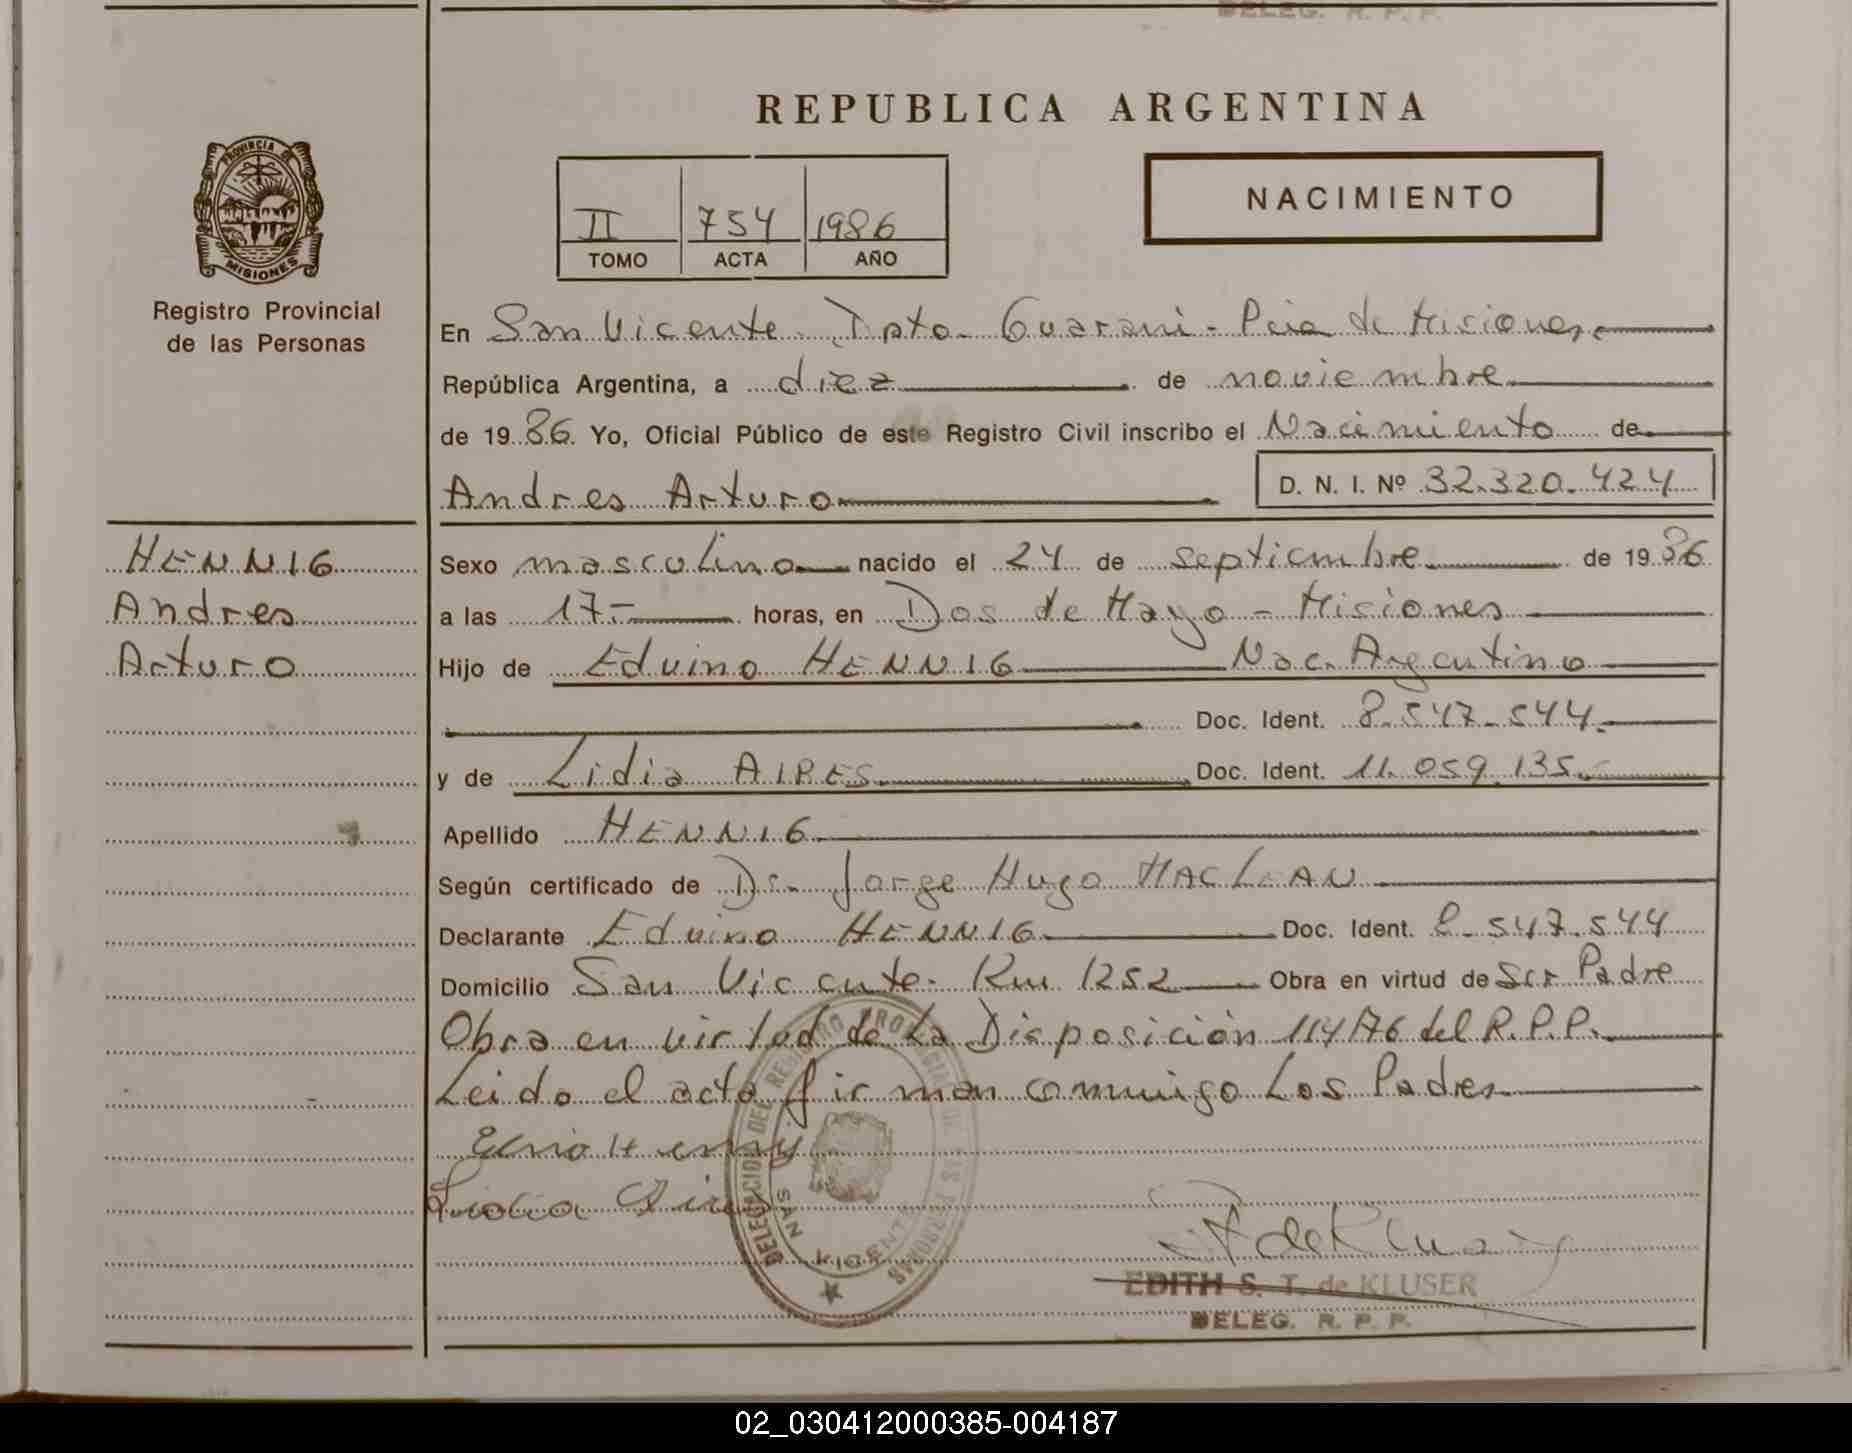 DELEG. R. P. P.
REPUBLICA ARGENTINA
PROVINCIA DE
MISIONES
Registro Provincial
de las Personas
NACIMIENTO
II 754 1986
TOMO ACTA AÑO
En San Vicente. Dpto. Guarani - Pcia de Misiones.
República Argentina, a diez de noviembre
de 1986 Yo, Oficial Público de este Registro Civil inscribo el Nacimiento de
Andres Arturo D. N. I. Nº 32.320.424
HENNIG
Andres
Arturo
Sexo masculino nacido el 24 de septiembre de 1986
a las 17.- horas, en Dos de Mayo - Misiones
Hijo de Eduino HENNIG Nac. Argentino
Doc. Ident. 8.547.544.
y de Lidia AIRES Doc. Ident. 11.059.135.
Apellido HENNIG
Según certificado de Dr. Jorge Hugo MACLEAN
Declarante Eduino HENNIG Doc. Ident. 8.547.544
Domicilio San Vicente. Km 1252 Obra en virtud de Ser Padre
Obra en virtud de La Disposición 114/76 del R.P.P.
Leido el acta firman conmigo Los Padres
Lidia Aires
DELEGACION DEL REGISTRO PROVINCIAL DE LAS PERSONAS
SAN VICENTE
EDITH S. T. de KLUSER
DELEG. R. P. P.
02_030412000385-004187